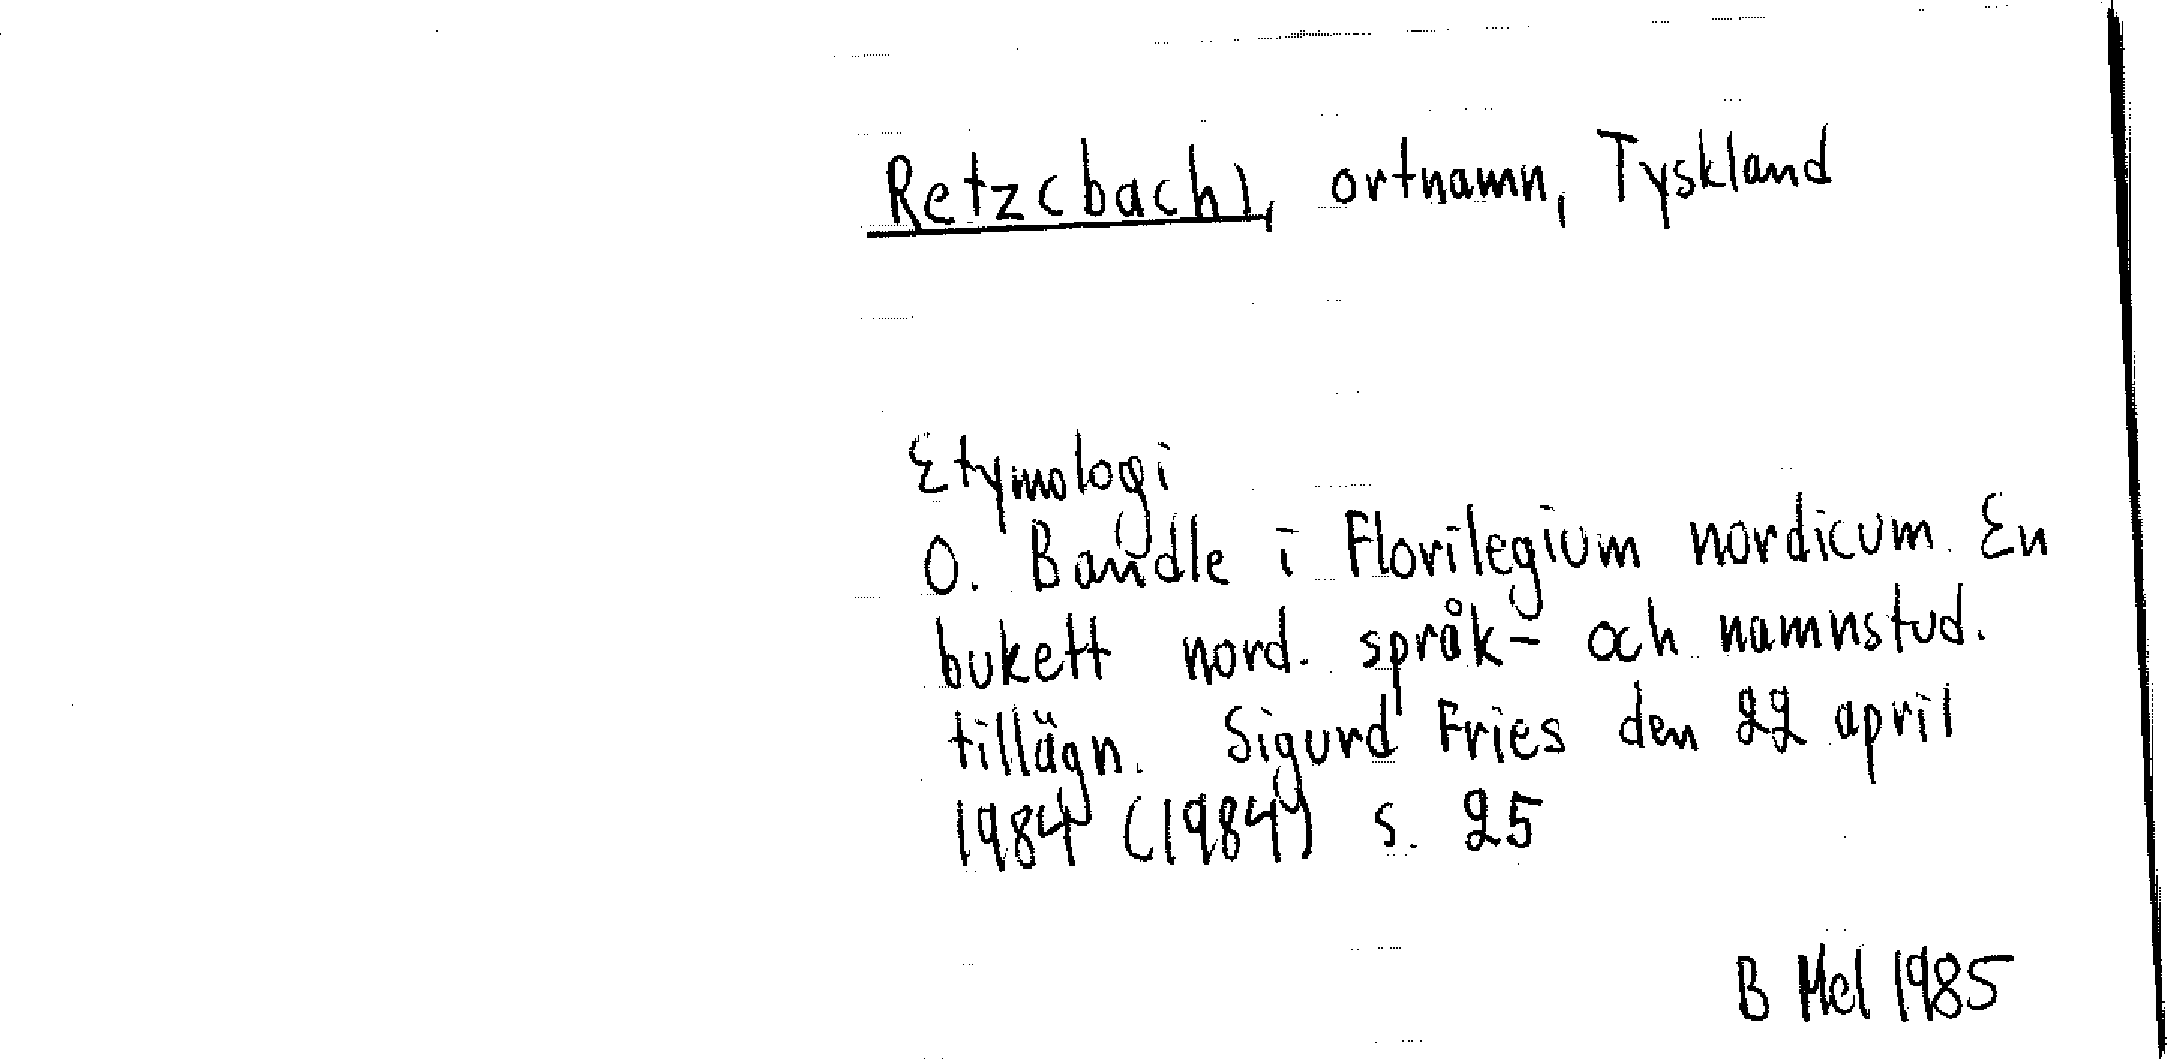 Retz(bach), ortnamn, Tyskland
Etymologi
O. Bandle i Florilegium nordicum. En
bukett nord. språk- och namnstud.
tillägn. Sigurd Fries den 22 april
1984 (1984) s. 25
B Mel 1985